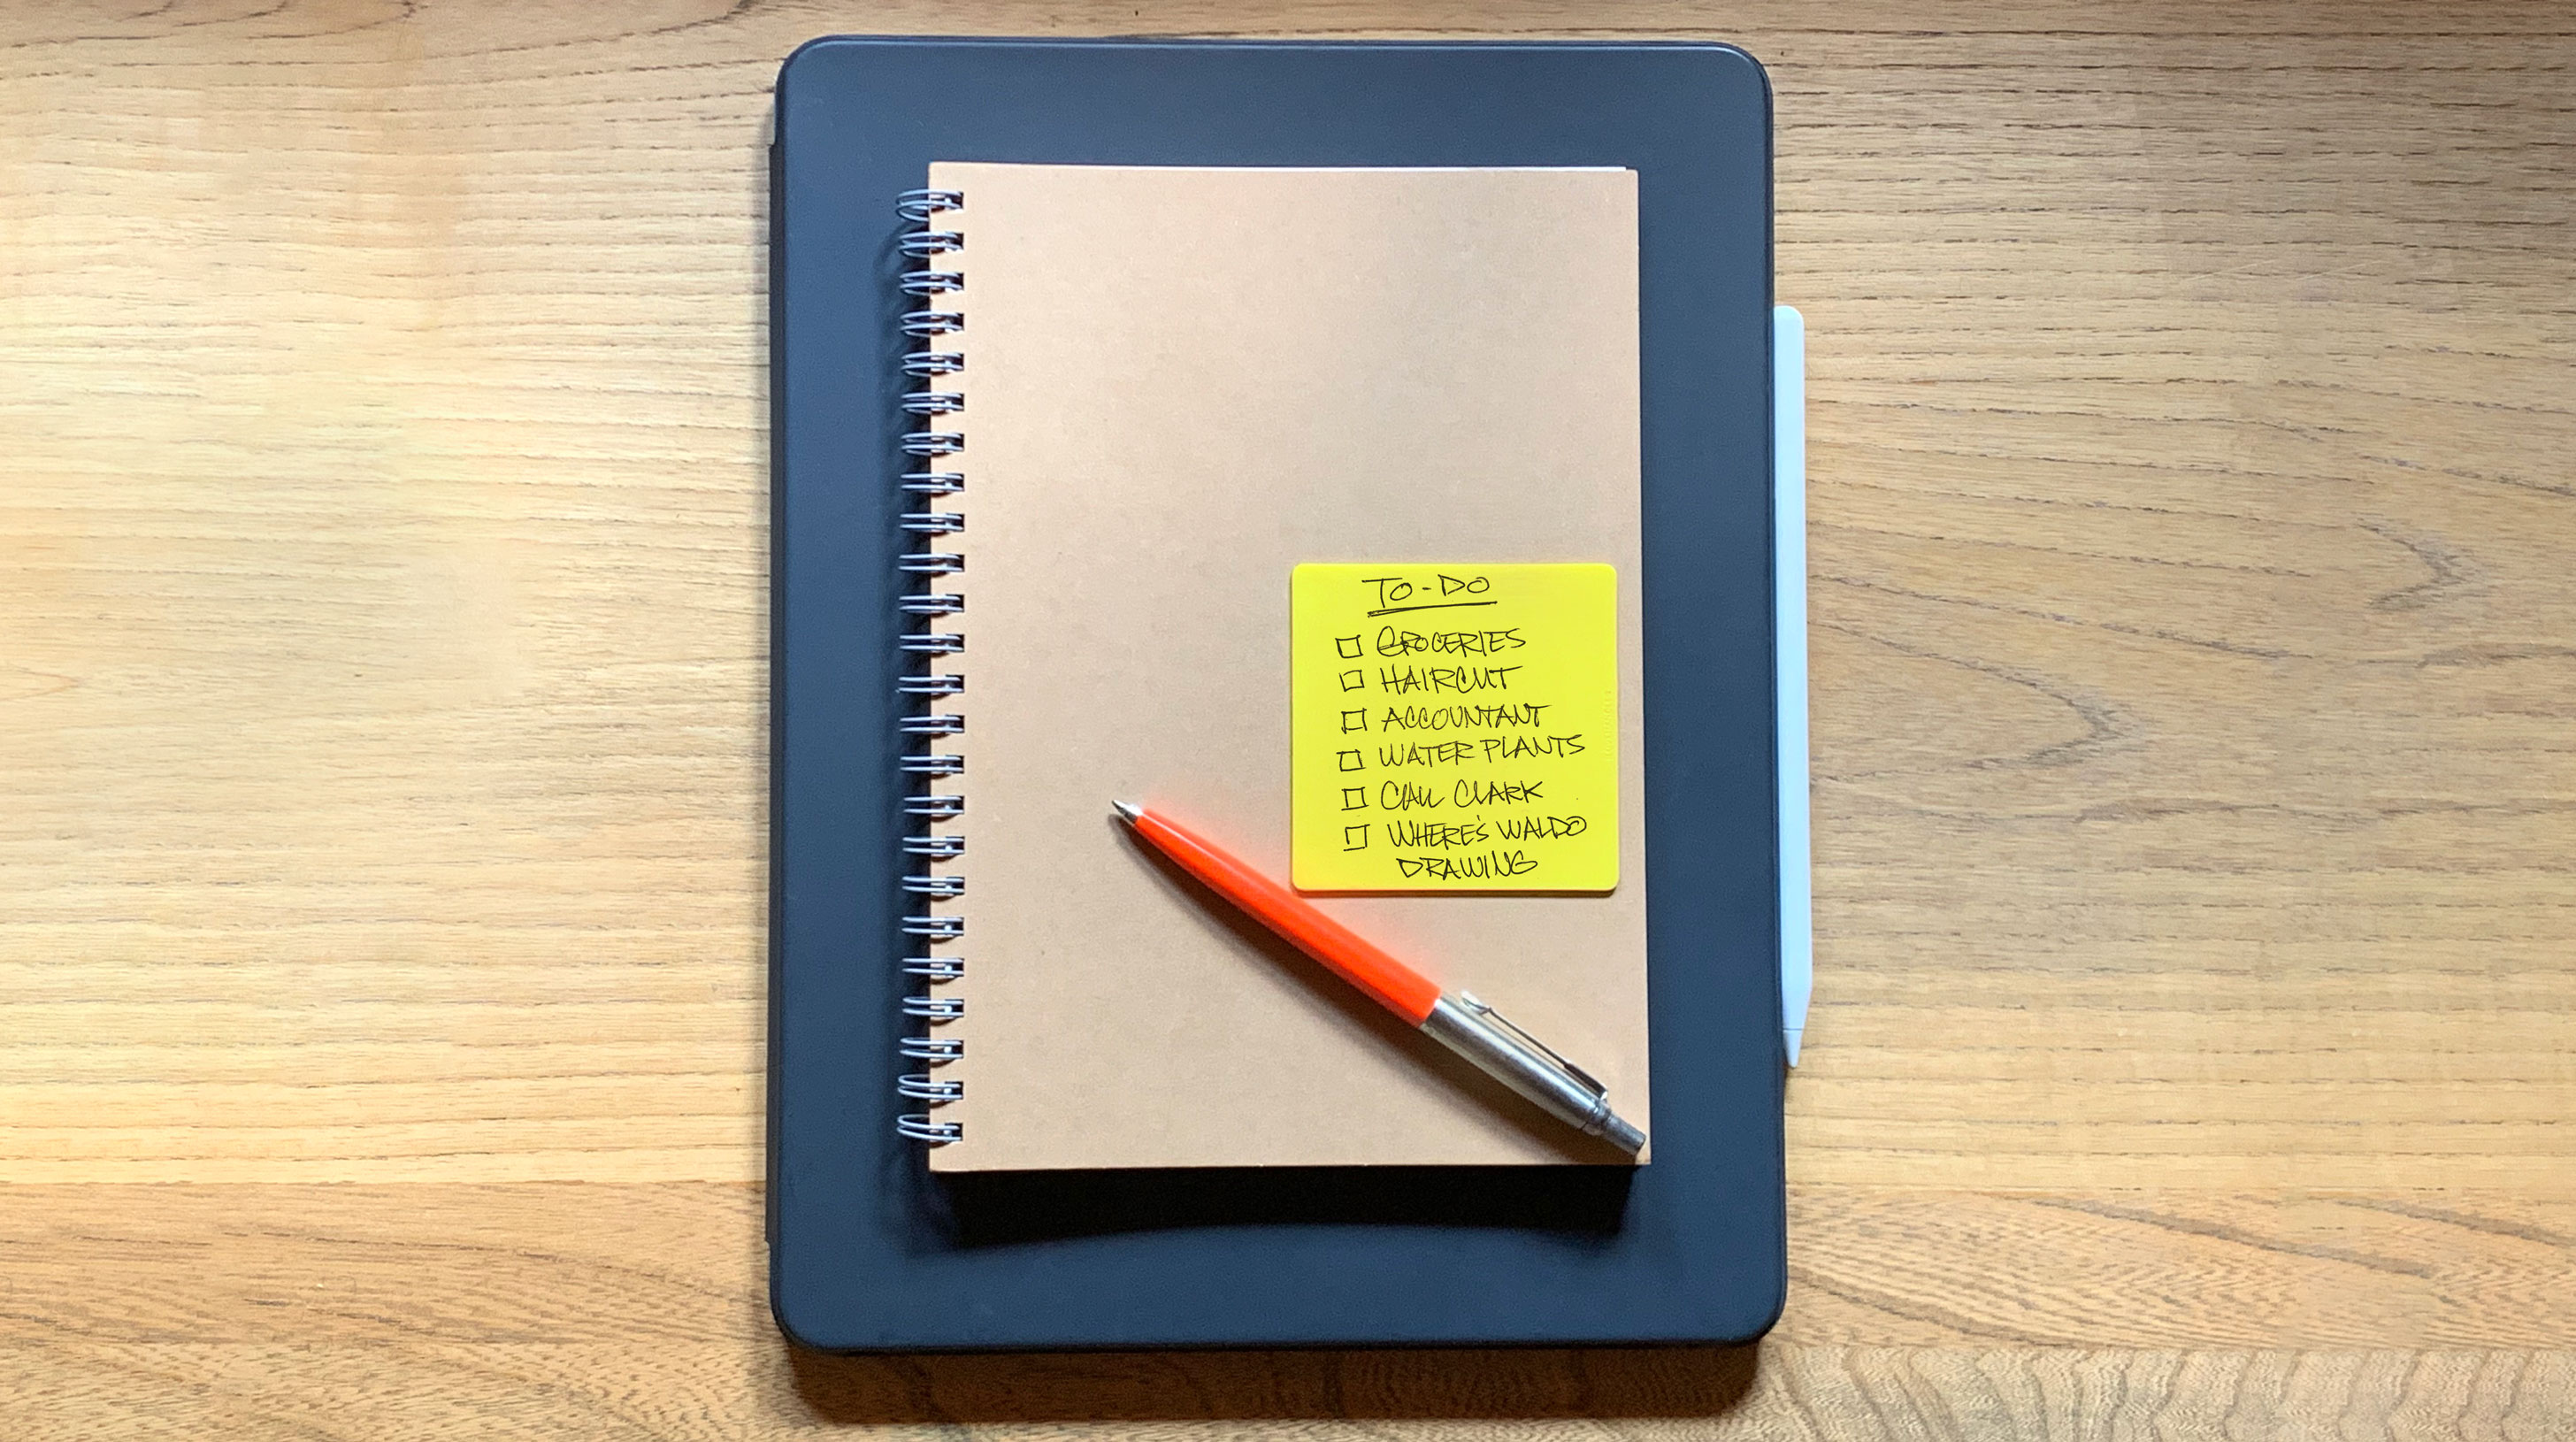 TO-DO
☐ GROCERIES
☐ HAIRCUT
☐ ACCOUNTANT
☐ WATER PLANTS
☐ CALL CLARK
☐ WHERE'S WALDO
DRAWING